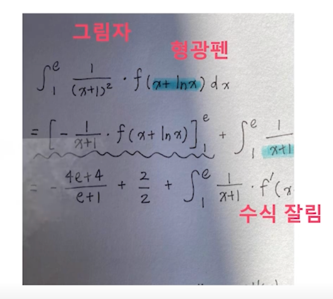 그림자
형광펜
∫₁ᵉ 1/(x+1)² · f(x+lnx) dx
= [-1/(x+1) · f(x+lnx)]₁ᵉ + ∫₁ᵉ 1/(x+1)
= -(4e+4)/(e+1) + 2/2 + ∫₁ᵉ 1/(x+1) · f'(x
수식 잘림